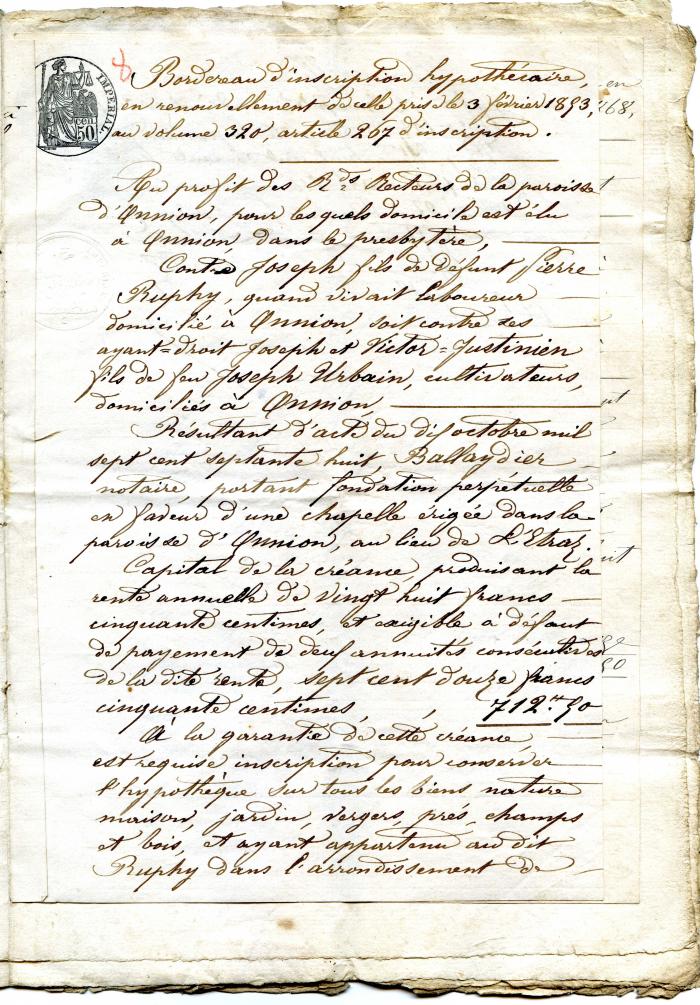 8
IMPERIAL.
CEN.
50
Bordereau d'inscription hypothécaire,
en renouvellement de celle prise le 3 février 1853,
au volume 320, article 267 d'inscription.
Au profit des Rds Recteurs de la paroisse
d'Onnion, pour lesquels domicile est élu
à Onnion, dans le presbytère,
Contre Joseph fils de défunt Pierre
Ruphy, quand vivait laboureur
domicilié à Onnion, soit contre ses
ayant=droit Joseph et Victor=Justinien
fils de feu Joseph Urbain, cultivateurs,
domiciliés à Onnion,
Résultant d'acte du dix octobre mil
sept cent septante huit, Ballaydier
notaire, portant fondation perpétuelle
en faveur d'une chapelle érigée dans la
paroisse d'Onnion, au lieu de L'Etraz.
Capital de la créance, produisant la
rente annuelle de vingt huit francs
cinquante centimes, et exigible à défaut
de payement de deux annuités consécutives
de la dite rente, sept cent douze francs
cinquante centimes, , 712.“50
A la garantie de cette créance,
est requise inscription pour conserver
l'hypothèque sur tous les biens nature
maison, jardin, vergers, prés, champs
et bois, et ayant appartenu au dit
Ruphy dans l'arrondissement de
en
468,